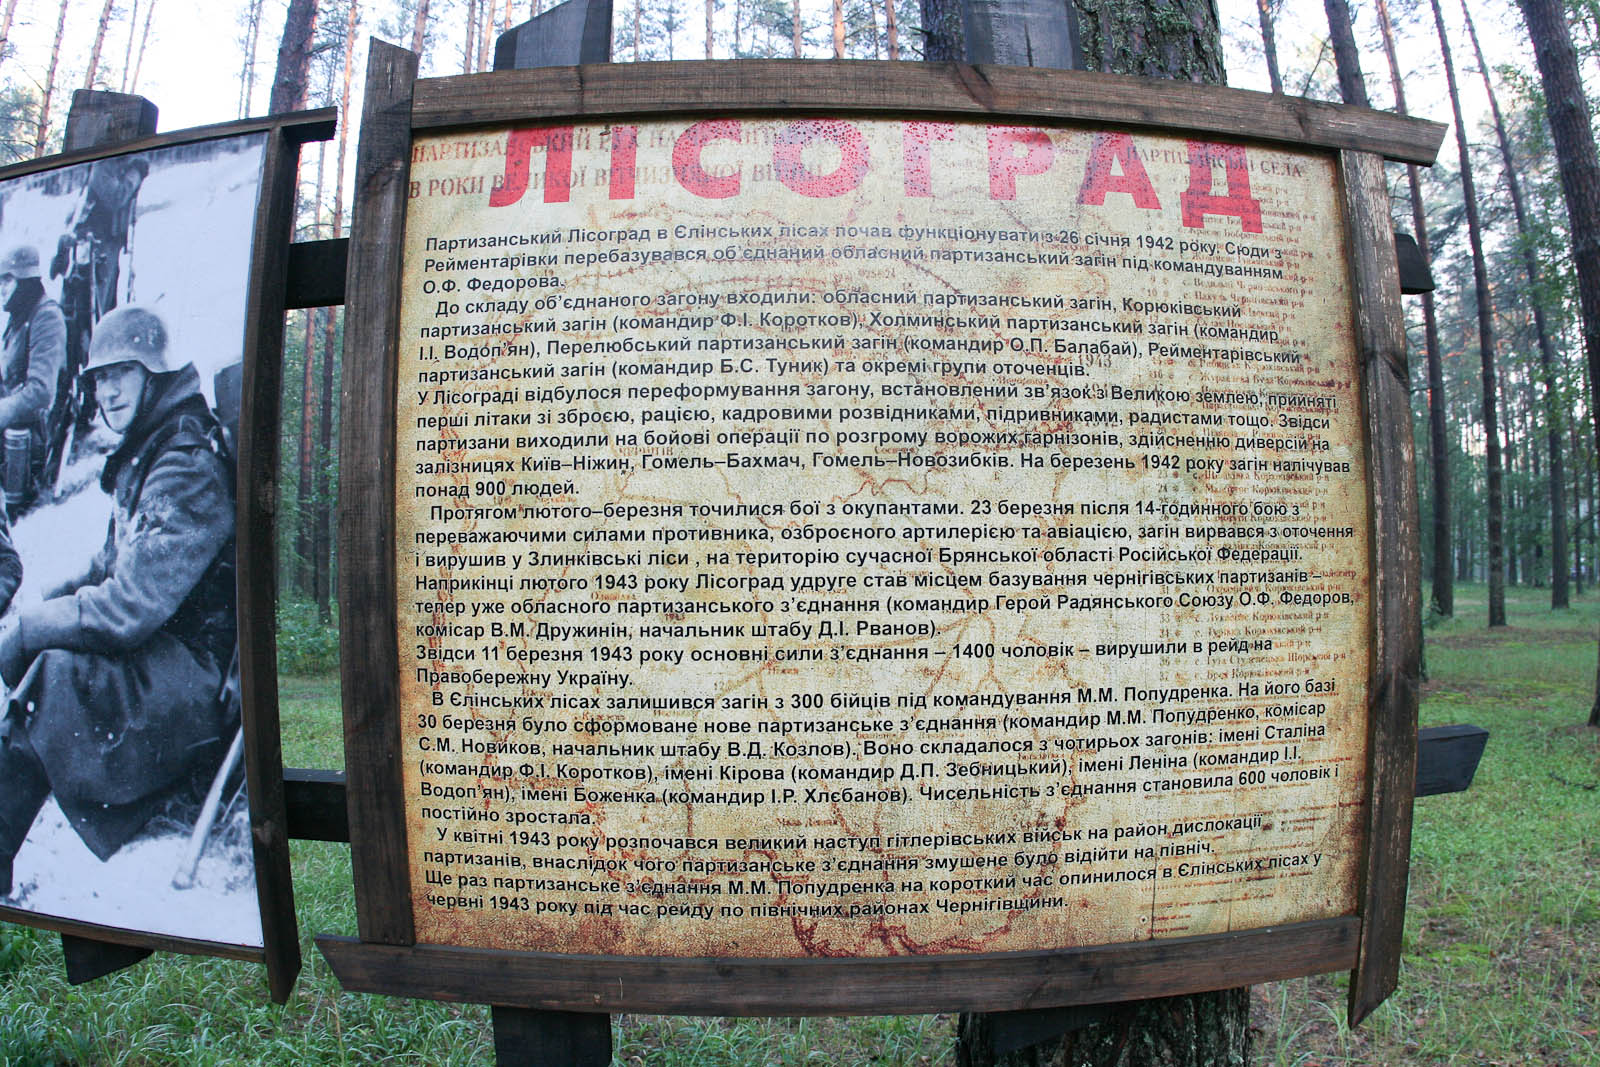 ЛІСОГРАД
ПАРТИЗАНСЬКИЙ РУХ НА
В РОКИ ВЕЛИКОЇ ВІТЧИЗНЯНОЇ ВІЙНИ
ПАРТИЗАНСЬКІ СЕЛА
Партизанський Лісоград в Єлінських лісах почав функціонувати з 26 січня 1942 року. Сюди з
Рейментарівки перебазувався об'єднаний обласний партизанський загін під командуванням
О.Ф. Федорова.
До складу об'єднаного загону входили: обласний партизанський загін, Корюківський
партизанський загін (командир Ф.І. Коротков), Холминський партизанський загін (командир
І.І. Водоп'ян), Перелюбський партизанський загін (командир О.П. Балабай), Рейментарівський
партизанський загін (командир Б.С. Туник) та окремі групи оточенців.
У Лісограді відбулося переформування загону, встановлений зв'язок з Великою землею, прийняті
перші літаки зі зброєю, рацією, кадровими розвідниками, підривниками, радистами тощо. Звідси
партизани виходили на бойові операції по розгрому ворожих гарнізонів, здійсненню диверсій на
залізницях Київ–Ніжин, Гомель–Бахмач, Гомель–Новозибків. На березень 1942 року загін налічував
понад 900 людей.
Протягом лютого–березня точилися бої з окупантами. 23 березня після 14-годинного бою з
переважаючими силами противника, озброєного артилерією та авіацією, загін вирвався з оточення
і вирушив у Злинківські ліси , на територію сучасної Брянської області Російської Федерації.
Наприкінці лютого 1943 року Лісоград удруге став місцем базування чернігівських партизанів –
тепер уже обласного партизанського з'єднання (командир Герой Радянського Союзу О.Ф. Федоров,
комісар В.М. Дружинін, начальник штабу Д.І. Рванов).
Звідси 11 березня 1943 року основні сили з'єднання – 1400 чоловік – вирушили в рейд на
Правобережну Україну.
В Єлінських лісах залишився загін з 300 бійців під командування М.М. Попудренка. На його базі
30 березня було сформоване нове партизанське з'єднання (командир М.М. Попудренко, комісар
С.М. Новиков, начальник штабу В.Д. Козлов). Воно складалося з чотирьох загонів: імені Сталіна
(командир Ф.І. Коротков), імені Кірова (командир Д.П. Зебницький), імені Леніна (командир І.І.
Водоп'ян), імені Боженка (командир І.Р. Хлєбанов). Чисельність з'єднання становила 600 чоловік і
постійно зростала.
У квітні 1943 року розпочався великий наступ гітлерівських військ на район дислокації
партизанів, внаслідок чого партизанське з'єднання змушене було відійти на північ.
Ще раз партизанське з'єднання М.М. Попудренка на короткий час опинилося в Єлінських лісах у
червні 1943 року під час рейду по північних районах Чернігівщини.